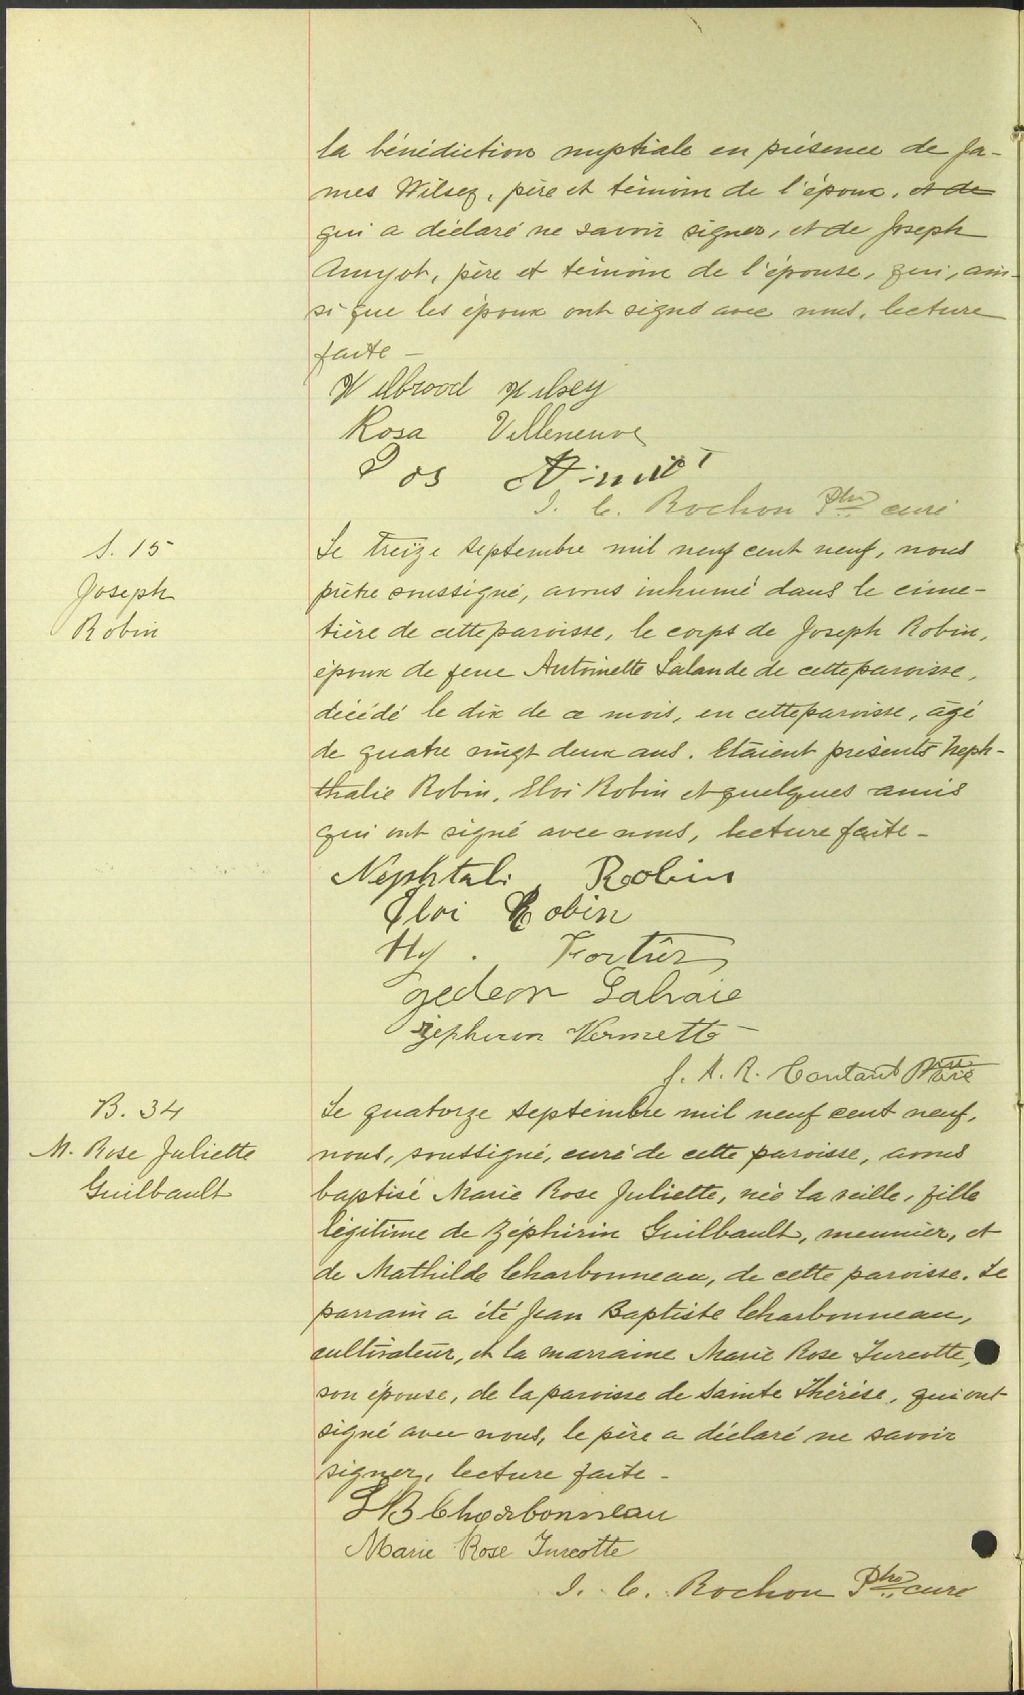 la bénédiction nuptiale en présence de Ja-
mes Wilsey, père et témoin de l'époux, et de
qui a déclaré ne savoir signer, et de Joseph
Amyot, père et témoin de l'épouse, qui, ain-
si que les époux ont signé avec nous, lecture
faite -
Wilbrood Wilsey
Rosa Villeneuve
Jos
J. C. Rochon Ptre curé
S. 15
Joseph
Robin
Le treize septembre mil neuf cent neuf, nous
prêtre soussigné, avons inhumé dans le cime-
tière de cette paroisse, le corps de Joseph Robin,
époux de feue Antoinette Lalande de cette paroisse,
décédé le dix de ce mois, en cette paroisse, âgé
de quatre vingt deux ans. Etaient présents Neph-
thalie Robin, Eloi Robin et quelques amis
qui ont signé avec nous, lecture faite -
Nephtali Robin
Eloi Robin
Hy. Fortier
gedeon Labraie
zephirin Vermette
J. A. R. Coutant Ptre
B. 34
M. Rose Juliette
Guilbault
Le quatorze septembre mil neuf cent neuf,
nous, soussigné, curé de cette paroisse, avons
baptisé Marie Rose Juliette, née la veille, fille
légitime de Zéphirin Guilbault, meunier, et
de Mathilde Charbonneau, de cette paroisse. Le
parrain a été Jean Baptiste Charbonneau,
cultivateur, et la marraine Marie Rose Turcotte,
son épouse, de la paroisse de Sainte Thérèse, qui ont
signé avec nous, le père a déclaré ne savoir
signer, lecture faite -
J B Charbonneau
Marie Rose Turcotte
J. C. Rochon Ptre curé